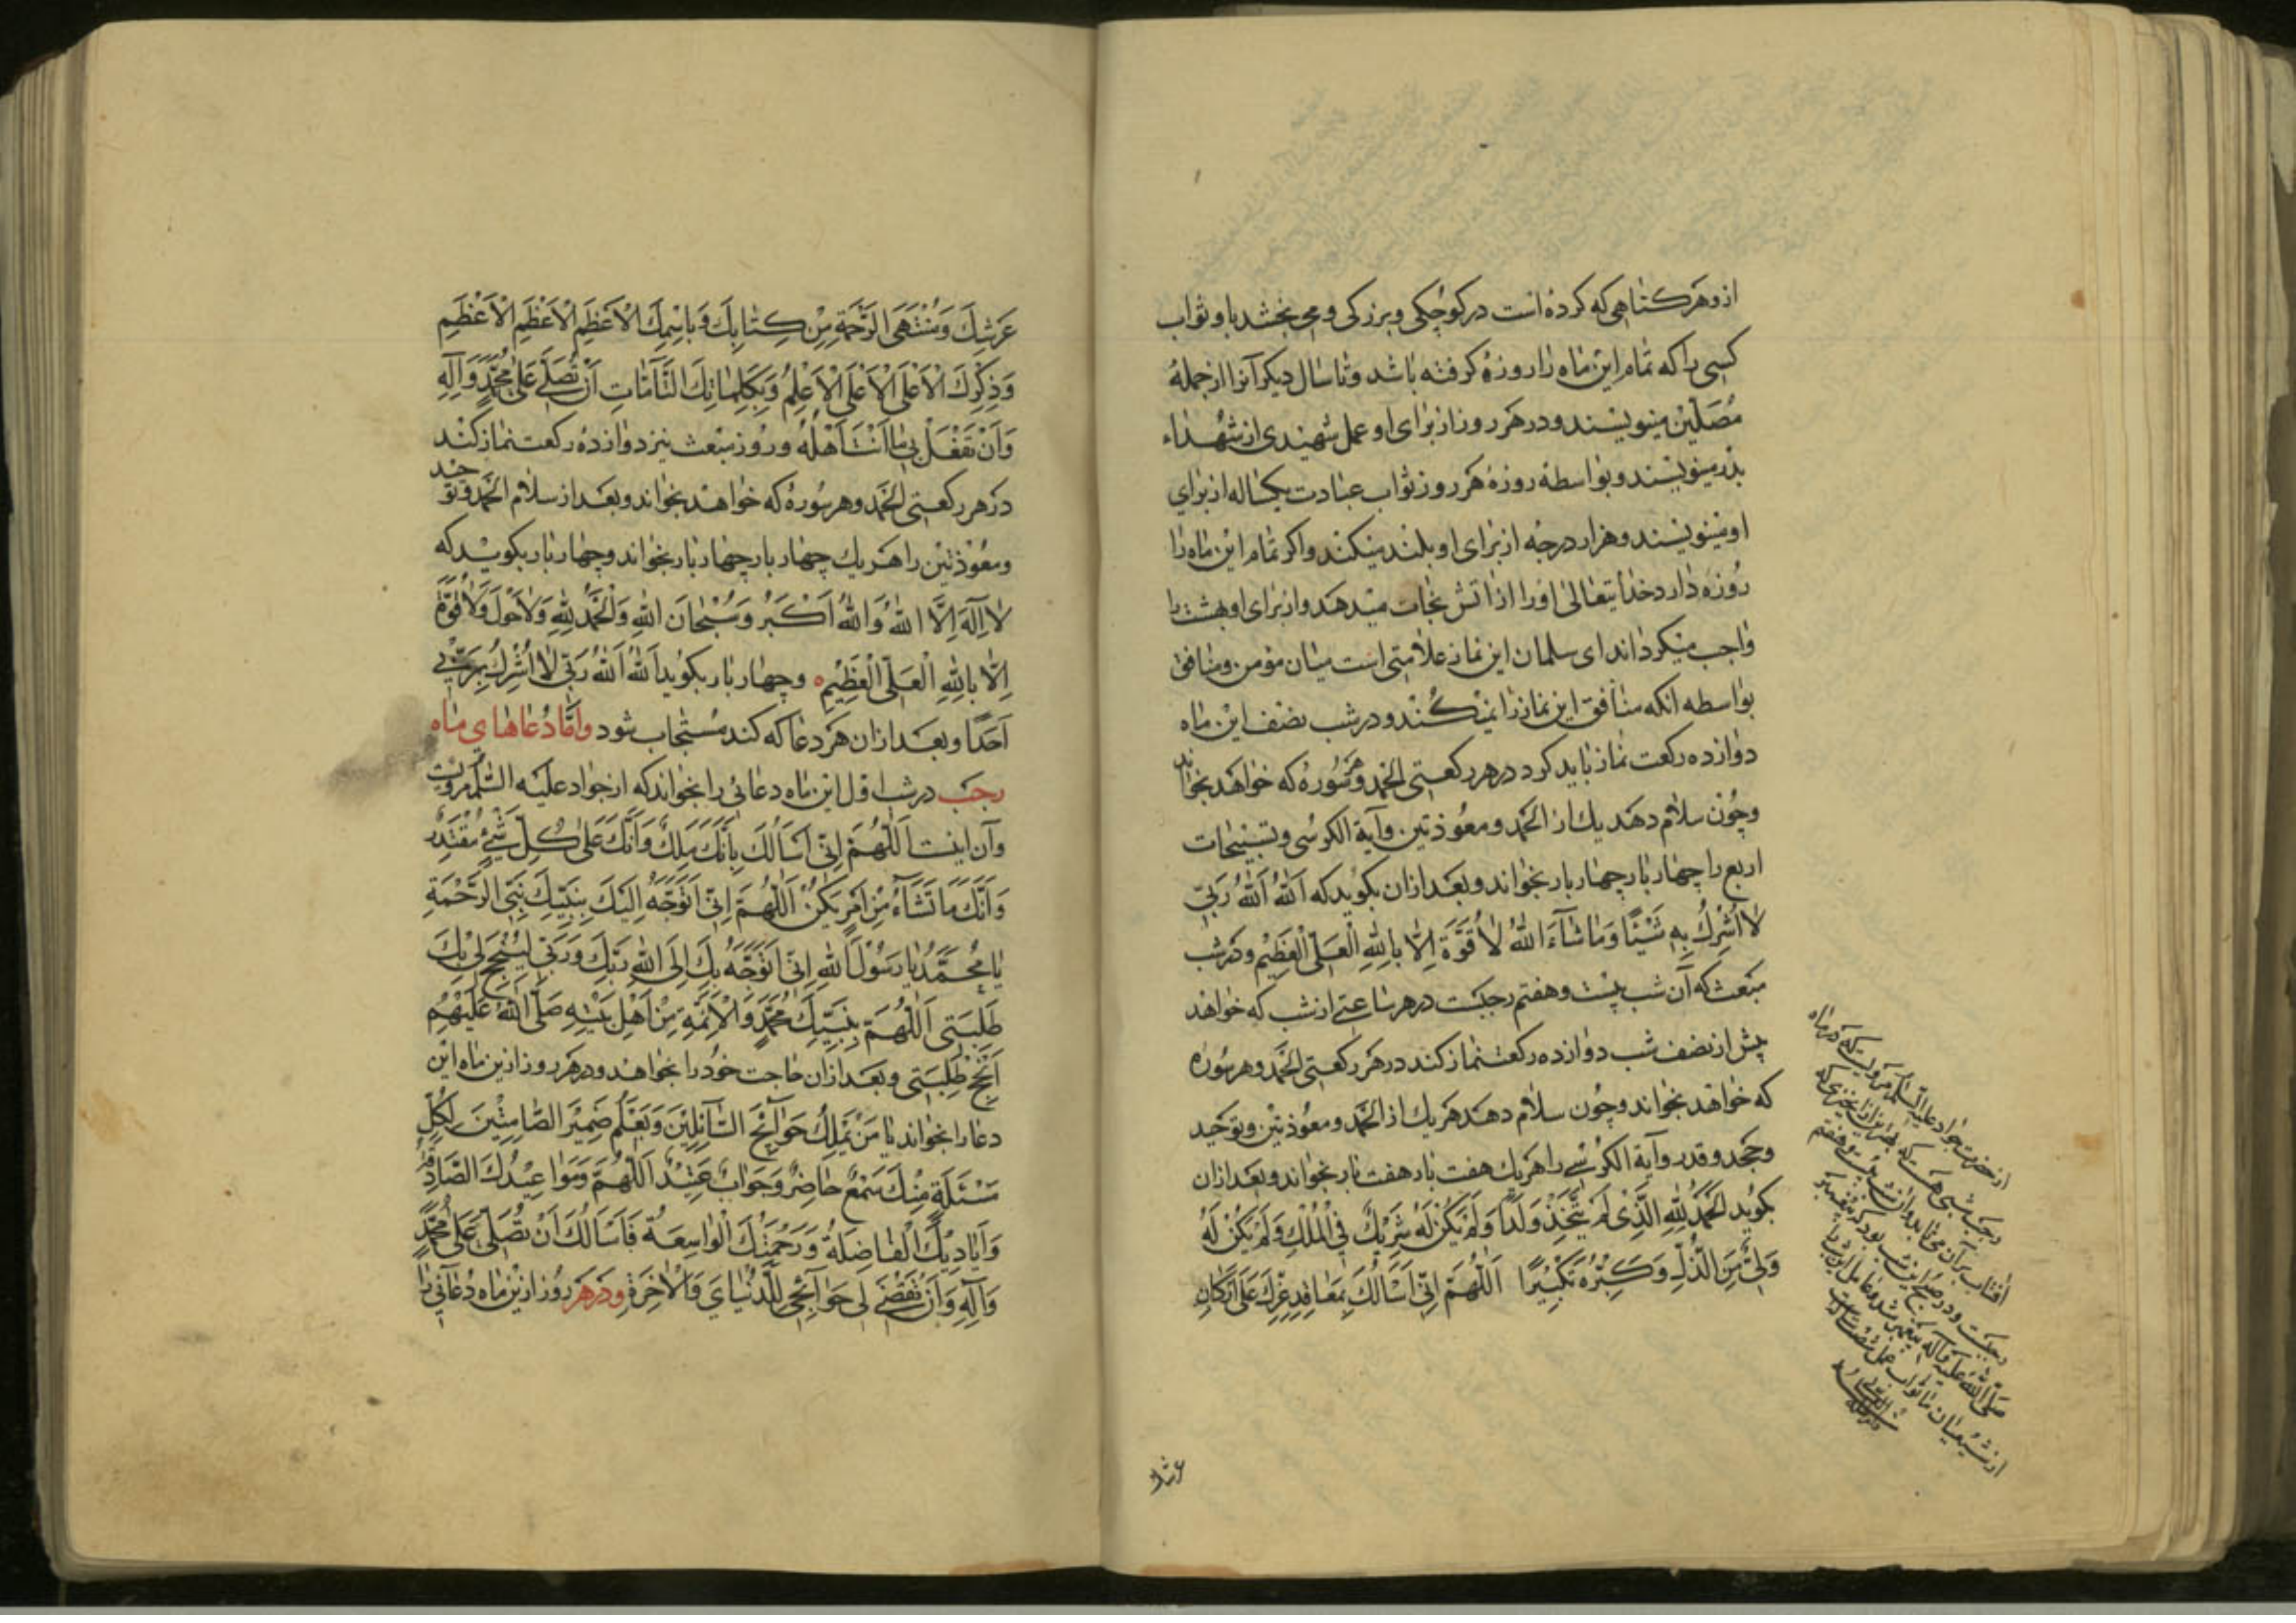 ازو هر گناهی که کرده است در کوچکی و بزرکی و می بخشد باو ثواب
کسی را که تمام این ماه را روزه کرفته باشد و تا سال دیکر آنرا از جملهٔ
مصلین مینویسند و در هر روز از برای او عمل شهیدی از شهداء
بدر مینویسند و بواسطهٔ روزهٔ هر روز ثواب عبادت یکساله از برای
او مینویسند و هزار درجه از برای او بلند میکنند و اکر تمام این ماه را
روزه دارد خدایتعالی او را از آتش نجات میدهد و از برای او بهشت را
واجب میکرداند ای سلمان این نماز علامتی است میان مؤمن و منافق
بواسطه آنکه منافق این نماز را نمیکنند و در شب نصف این ماه
دوازده رکعت نماز باید کرد در هر رکعتی الحمد و هر سورهٔ که خواهد بخواند
و چون سلام دهد یك از الحمد و معوذتین و آیة الکرسی و تسبیحات
اربع را چهار بار چهار بار بخواند و بعد از آن بکوید که اَللّٰهُ اَللّٰهُ رَبّی
لا اُشْرِكُ بِهِ شَیْئًا وَمَا شَآءَ اللّٰهُ لا قُوَّةَ اِلّا بِاللّٰهِ الْعَلِیِّ الْعَظِیْمِ و در شب
مبعث که آن شب بیست و هفتم رجبست در هر ساعتی از شب که خواهد
پیش از نصف شب دوازده رکعت نماز کند در هر رکعتی الحمد و هر سوره
که خواهد بخواند و چون سلام دهد هر یك از الحمد و معوذتین و توحید
و جحد و قدر و آیة الکرسی را هر یك هفت بار هفت بار بخواند و بعد از آن
بکوید اَلْحَمْدُ لِلّٰهِ الَّذِی لَمْ یَتَّخِذْ وَلَدًا وَلَمْ یَکُنْ لَهُ شَرِیْكٌ فِی الْمُلْكِ وَلَمْ یَکُنْ لَهُ
وَلِیٌّ مِنَ الذُّلِّ وَکَبِّرْهُ تَکْبِیْرًا اَللّٰهُمَّ اِنّی اَسْاَلُكَ بِمَعَاقِدِ عِزِّكَ عَلٰی اَرْکَانِ
از حضرت جواد علیه السلام مرویست که در ماه
رجب شبی هست که بهتر است از چیزی که
آفتاب بر آن می تابد و آن شب بیست و هفتم
رجبست و در صبح این شب بود که پیغمبر
صلی الله علیه و آله پیغمبر شد و عامل این شب را
از شیعیان ما ثواب عمل شصت سال است
عرشك
عَرْشِكَ وَمُنْتَهَی الرَّحْمَةِ مِنْ کِتَابِكَ وَبِاسْمِكَ الْاَعْظَمِ الْاَعْظَمِ الْاَعْظَمِ
وَذِکْرِكَ الْاَعْلَی الْاَعْلَی الْاَعْلَی وَبِکَلِمَاتِكَ التَّآمَّاتِ اَنْ تُصَلِّیَ عَلٰی مُحَمَّدٍ وَآلِهِ
وَاَنْ تَفْعَلَ بِی مَا اَنْتَ اَهْلُهُ و روز مبعث نیز دوازده رکعت نماز کند
در هر رکعتی الحمد و هر سورهٔ که خواهد بخواند و بعد از سلام الحمد و توحید
و معوذتین را هر یك چهار بار چهار بار بخواند و چهار بار بکوید که
لا اِلٰهَ اِلَّا اللّٰهُ وَاللّٰهُ اَکْبَرُ وَسُبْحَانَ اللّٰهِ وَالْحَمْدُ لِلّٰهِ وَلا حَوْلَ وَلا قُوَّةَ
اِلّا بِاللّٰهِ الْعَلِیِّ الْعَظِیْمِ و چهار بار بکوید اَللّٰهُ اَللّٰهُ رَبِّی لا اُشْرِكُ بِرَبّی
اَحَدًا و بعد از آن هر دعا که کند مستجاب شود و اما دعاهای ماه
رجب در شب اول این ماه دعائی را بخواند که از جواد علیه السلام مرویست
و آن اینست اَللّٰهُمَّ اِنّی اَسْاَلُكَ بِاَنَّكَ مَلِكٌ وَاَنَّكَ عَلٰی کُلِّ شَیْءٍ مُقْتَدِرٌ
وَاَنَّكَ مَا تَشَآءُ مِنْ اَمْرٍ یَکُنْ اَللّٰهُمَّ اِنّی اَتَوَجَّهُ اِلَیْكَ بِنَبِیِّكَ نَبِیِّ الرَّحْمَةِ
یَا مُحَمَّدُ یَا رَسُوْلَ اللّٰهِ اِنّی اَتَوَجَّهُ بِكَ اِلَی اللّٰهِ رَبِّكَ وَرَبّی لِیُنْجِحَ لِی بِكَ
طَلِبَتِی اَللّٰهُمَّ بِنَبِیِّكَ مُحَمَّدٍ وَالْاَئِمَّةِ مِنْ اَهْلِ بَیْتِهِ صَلَّی اللّٰهُ عَلَیْهِمْ
اَنْجِحْ طَلِبَتِی و بعد از آن حاجت خود را بخواهد و در هر روز ازین ماه این
دعا را بخواند یَا مَنْ یَمْلِكُ حَوَآئِجَ السَّآئِلِیْنَ وَیَعْلَمُ ضَمِیْرَ الصَّامِتِیْنَ لِکُلِّ
مَسْئَلَةٍ مِنْكَ سَمْعٌ حَاضِرٌ وَجَوَابٌ عَتِیْدٌ اَللّٰهُمَّ وَمَوَاعِیْدُكَ الصَّادِقَةُ
وَاَیَادِیْكَ الْفَاضِلَةُ وَرَحْمَتُكَ الْوَاسِعَةُ فَاَسْاَلُكَ اَنْ تُصَلِّیَ عَلٰی مُحَمَّدٍ
وَآلِهِ وَاَنْ تَقْضِیَ لِی حَوَآئِجِی لِلدُّنْیَایَ وَالْاٰخِرَةِ و در هر روز ازین ماه دعائی را